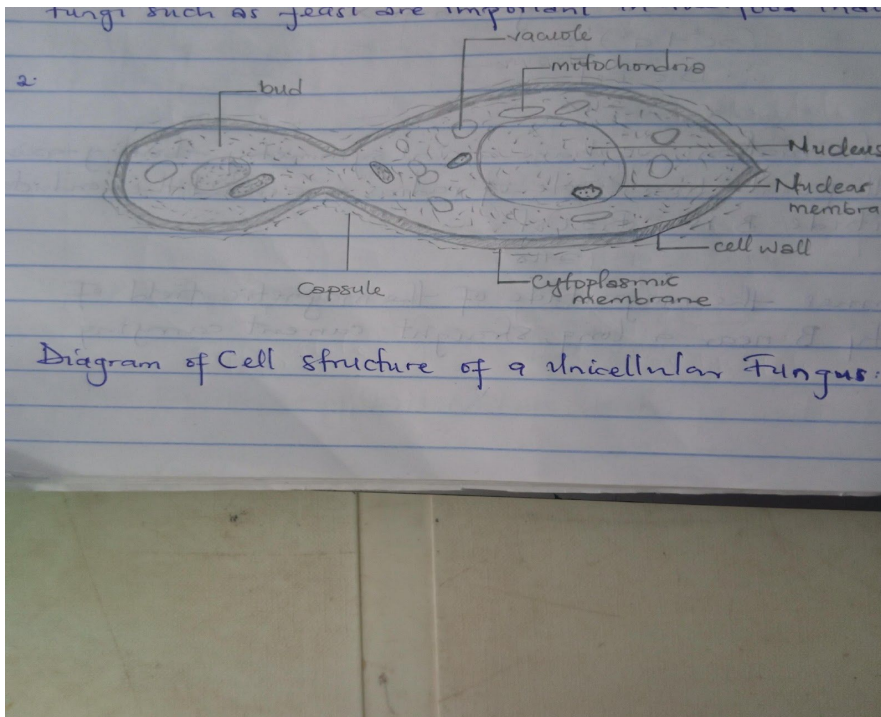 fungi such as yeast are important in
2.
vacuole
mitochondria
bud
Nucleus
Nuclear
membra
cell wall
Capsule
Cytoplasmic
membrane
Diagram of Cell structure of a Unicellular Fungus.